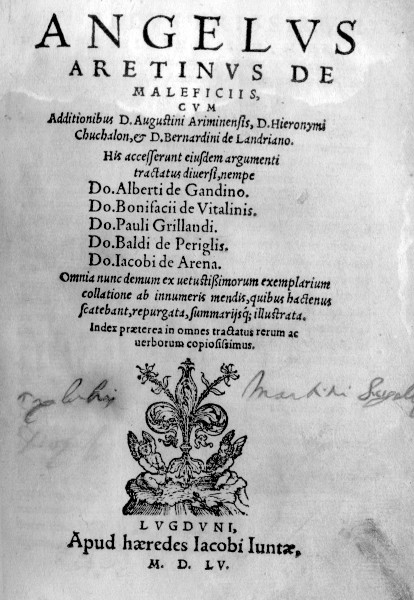 ANGELVS
ARETINVS DE
MALEFICIIS,
CVM
Additionibus D. Augustini Ariminensis, D. Hieronymi
Chuchalon, & D. Bernardini de Landriano.
His accesserunt eiusdem argumenti
tractatus diuersi, nempe
Do. Alberti de Gandino.
Do. Bonifacii de Vitalinis.
Do. Pauli Grillandi.
Do. Baldi de Periglis.
Do. Iacobi de Arena.
Omnia nunc demum ex uetustißimorum exemplarium
collatione ab innumeris mendis, quibus hactenus
scatebant, repurgata, summarijsq; illustrata.
Index præterea in omnes tractatus rerum ac
uerborum copiosissimus.
Martini
LVGDVNI,
Apud hæredes Iacobi Iuntæ,
M. D. LV.